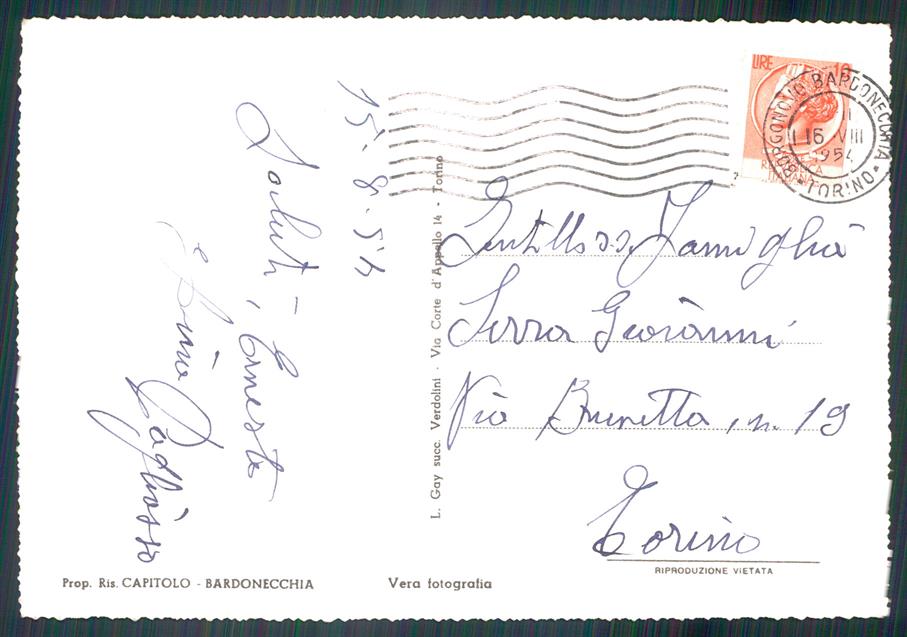 15-8-54
Saluti, Ernesto
e
LIRE 10
REPUBBLICA
ITALIANA
BORGONOVO BARDONECCHIA
16 VIII
1954
* TORINO *
Gentilless. Famiglia
Serra Giovanni
Via Brunetta, n. 19
Torino
RIPRODUZIONE VIETATA
L. Gay succ. Verdolini - Via Corte d'Appello 14 - Torino
Prop. Ris. CAPITOLO - BARDONECCHIA
Vera fotografia